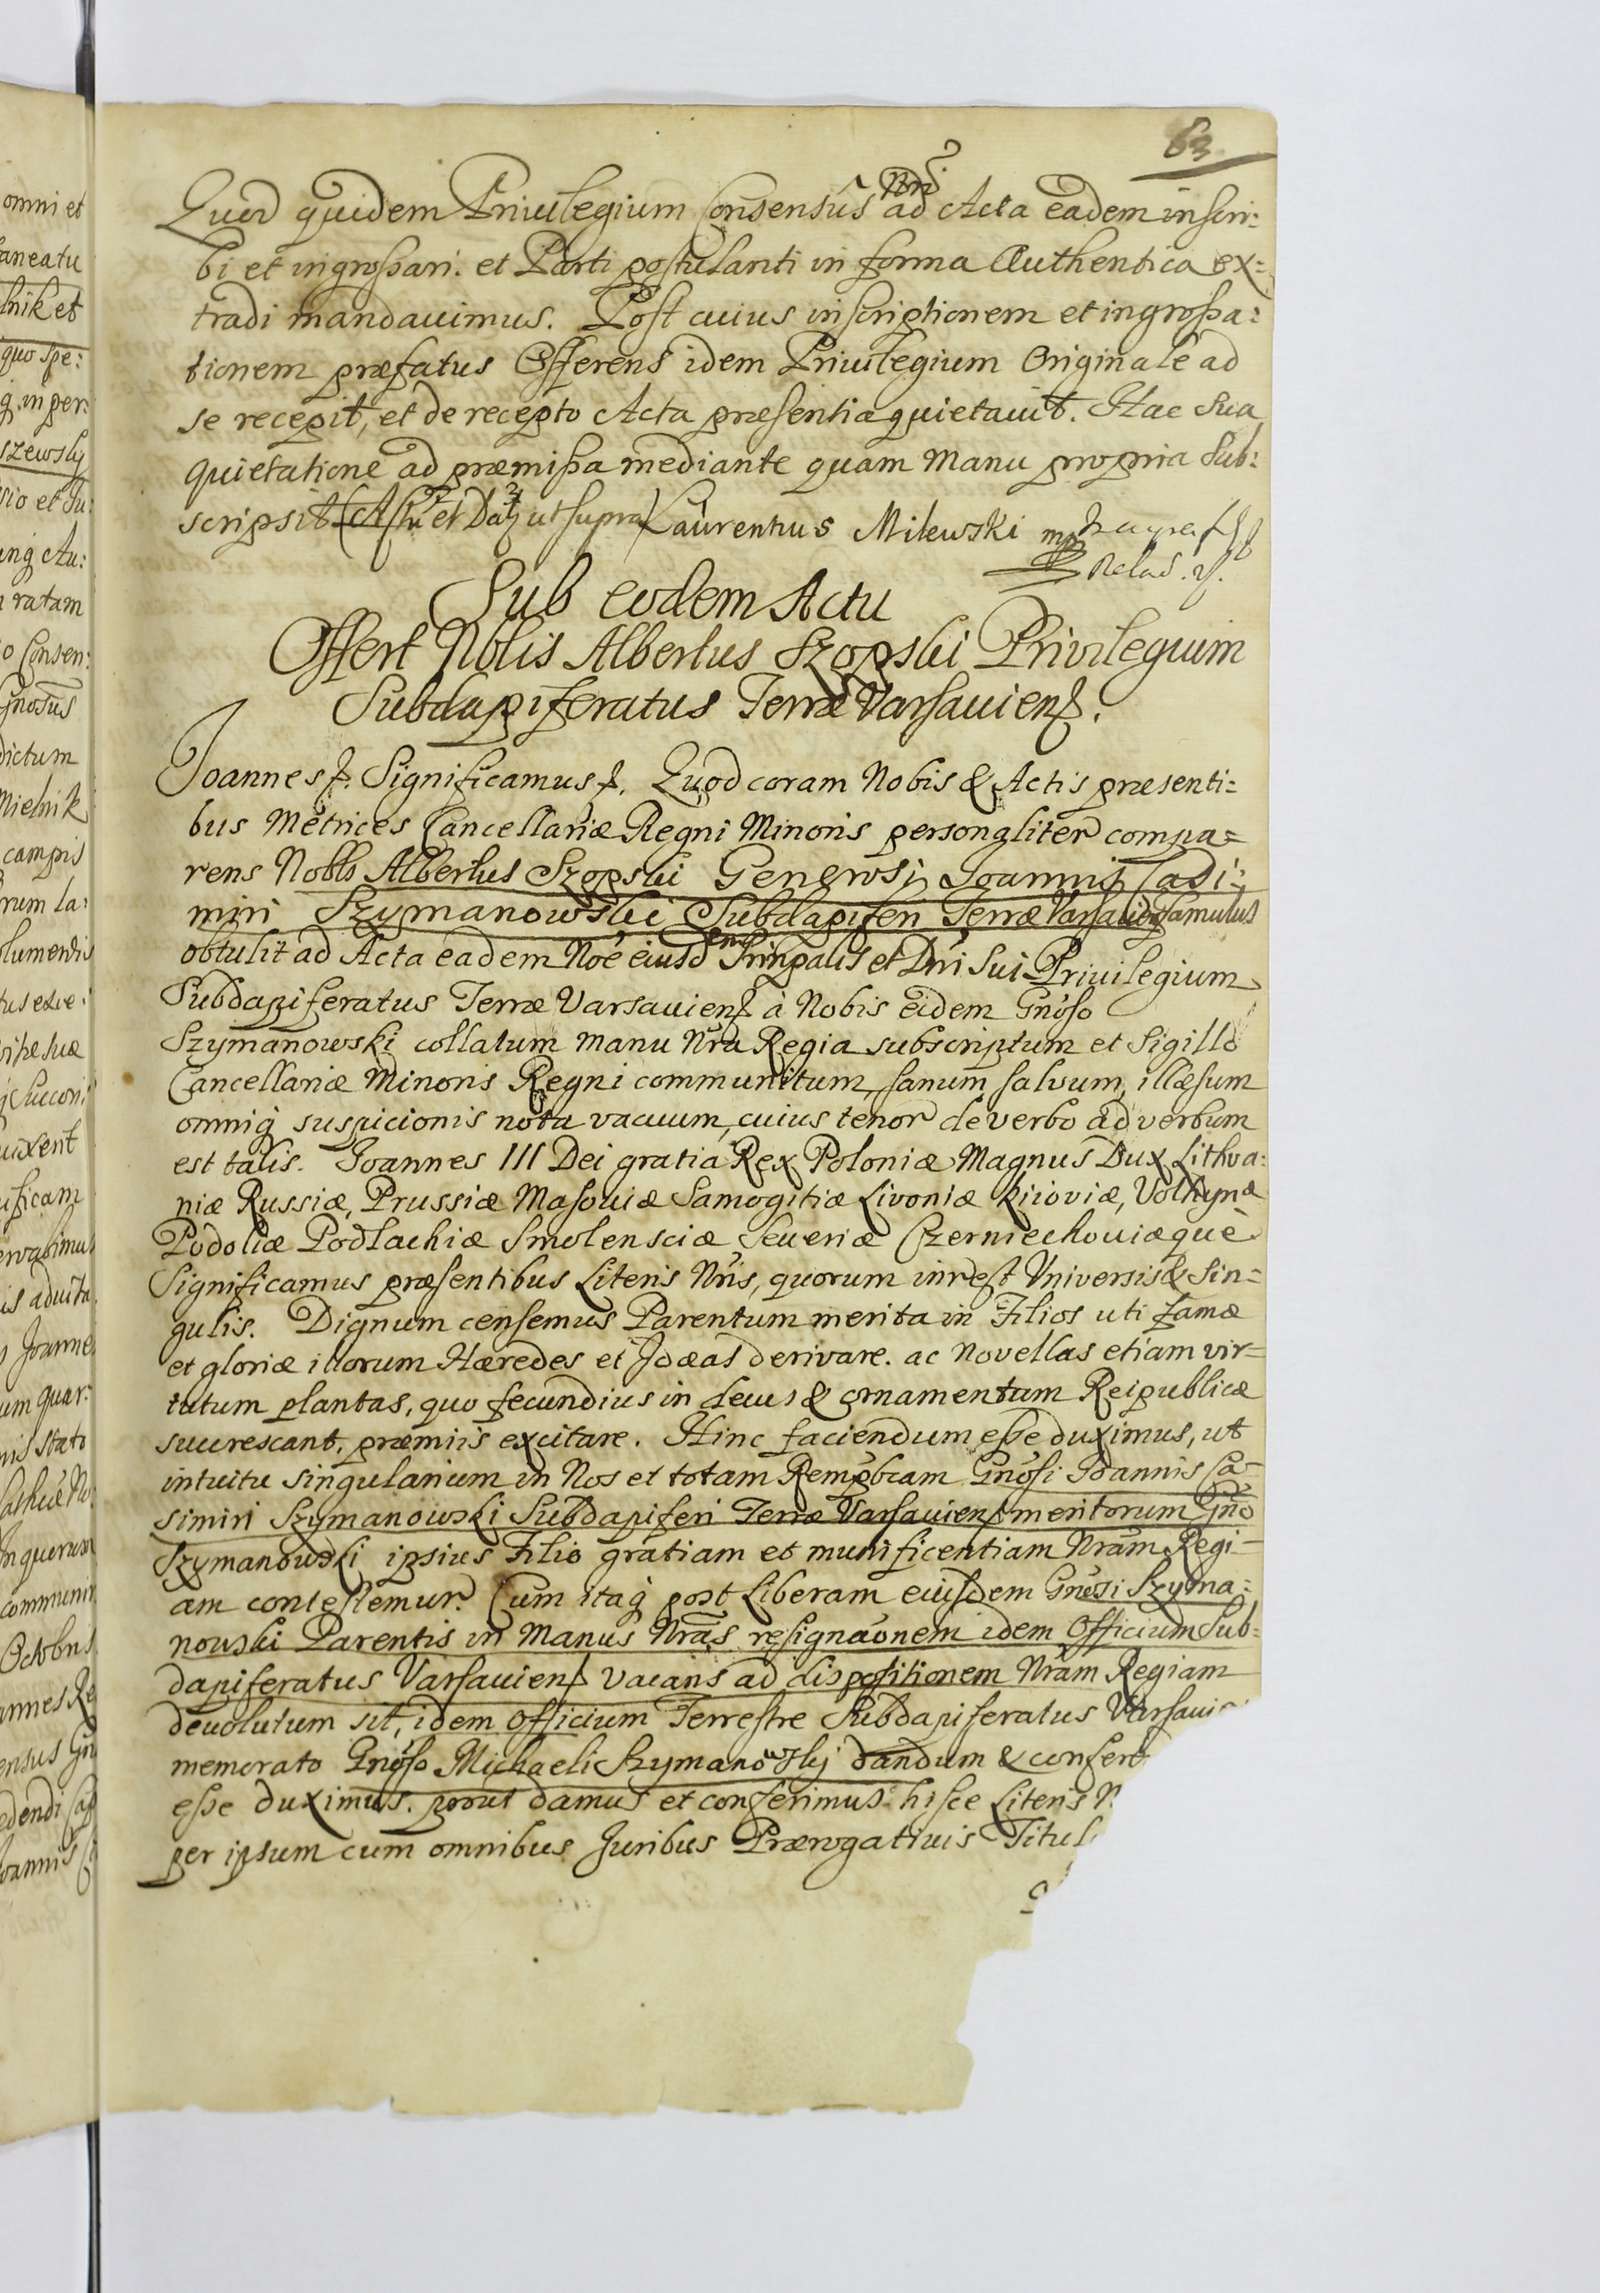 63
Quod quidem Priuilegium Consensus Nri ad Acta eadem inscri:
bi et ingrossari. et Parti postulanti in forma Authentica ex:
tradi mandauimus. Post cuius inscriptionem et ingrossa:
tionem præfatus Offerens idem Priuilegium Originale ad
se recepit, et de recepto Acta præsentia quietauit. Hac sua
quietatione ad præmissa mediante quam Manu propria sub:
scripsit Actu et Datt ut supra Laurentius Milewski mp
Sub eodem Actu
Offert Nblis Albertus Szopski Privilegium
Subdapiferatus Terræ Varsauiens.
Joannes Significamus Quod coram Nobis & Actis præsenti=
bus Metrices Cancellariæ Regni Minoris personaliter compa=
rens Nobls Albertus Szopski Generosi Joannis Casi:
miri Szymanowski Subdapiferi Terræ Varsauien famulus
obtulit ad Acta eadem Noe eiusdem Prinpalis et Dni sui Priuilegium
Subdapiferatus Terræ Varsauiens à Nobis eidem Gnoso
Szymanowski collatum manu Nra Regia subscriptum et Sigillo
Cancellariæ Minoris Regni communitum, sanum salvum, illæsum
omniq suspicionis nota vacuum, cuius tenor de verbo ad verbum
est talis. Joannes III Dei gratia Rex Poloniæ Magnus Dux Lithva:
niæ Russiæ, Prussiæ Masouiæ Samogitiæ Livoniæ Kiioviæ, Volhynæ
Podoliæ Podlachiæ Smolensciæ Seueriæ Czerniechouiæquè
Significamus præsentibus Literis Nris, quorum inrest Vniversis & Sin=
gulis. Dignum censemus Parentum merita in Filios uti famæ
et gloriæ illorum Hæredes et Idæas derivare. ac Novellas etiam vir=
tutum plantas, quo fecundius in decus & ornamentum Reipublicæ
sucrescant, præmiis excitare. Hinc faciendum esse duximus, ut
intuitu singularium in Nos et totam Rempbcam Gnosi Joannis Ca-
simiri Szymanowski Subdapiferi Terræ Varsauiens meritorum Gno
Szymanowski ipsius Filio gratiam et munificentiam Nram Regi-
am contestemur. Cum itaq post Liberam eiusdem Gnosi Szyma:
nowski Parentis in Manus Nras resignaonem idem Officium Sub:
dapiferatus Varsauiens vacans ad dispositionem Nram Regiam
deuolutum sit, idem Officium Terrestre Subdapiferatus Varsaui
memorato Gnoso Michaeli Szymanowskij dandum & confer
esse duximus. prout damus et conferimus hisce Literis N
per ipsum cum omnibus Juribus Prærogatiuis Titul